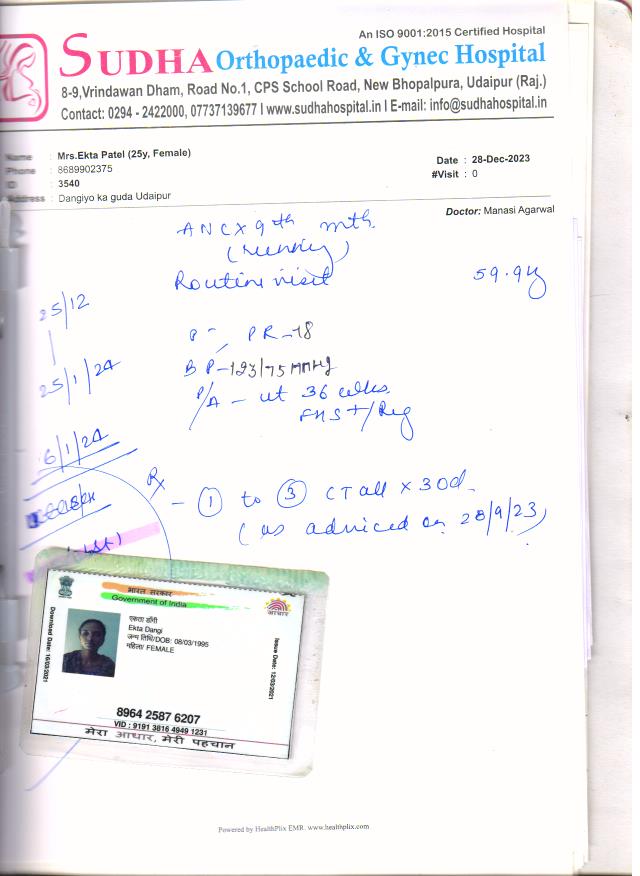 An ISO 9001:2015 Certified Hospital
SUDHA Orthopaedic & Gynec Hospital
8-9,Vrindawan Dham, Road No.1, CPS School Road, New Bhopalpura, Udaipur (Raj.)
Contact: 0294 - 2422000, 07737139677 I www.sudhahospital.in I E-mail: info@sudhahospital.in
Name : Mrs.Ekta Patel (25y, Female)
Phone : 8689902375
ID : 3540
Address : Dangiyo ka guda Udaipur
Date : 28-Dec-2023
#Visit : 0
Doctor: Manasi Agarwal
ANC x 9th mth
(running)
Routine visit
59.9
25/12
PR-
BP-123/75 MMHg
25/1/24
P/A - ut 36 wks
FHS +/Reg
6/1/24
Rx
- ① to ③ CT all x 30d
(as adviced on 28/9/23)
भारत सरकार
Government of India
आधार
एकता डाँगी
Ekta Dangi
जन्म तिथि/DOB: 08/03/1995
महिला/ FEMALE
Download Date: 16/03/2021
Issue Date: 12/03/2021
8964 2587 6207
VID : 9191 3816 4949 1231
मेरा आधार, मेरी पहचान
Powered by HealthPlix EMR. www.healthplix.com